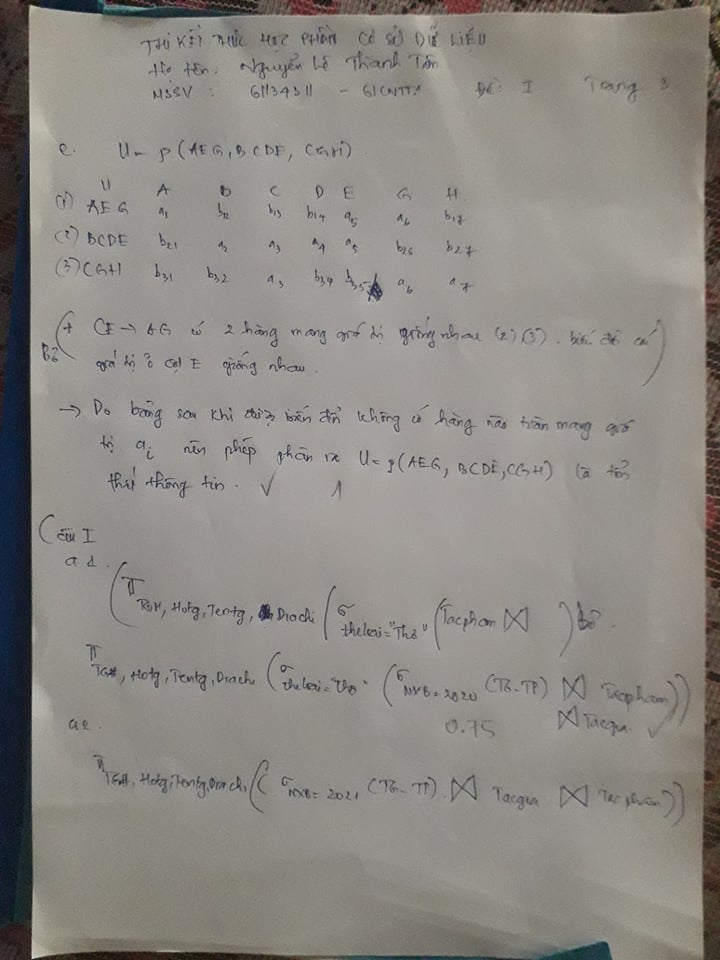 THI KẾT THÚC HỌC PHẦN CƠ SỞ DỮ LIỆU
Họ tên: Nguyễn Lê Thanh Tân
MSSV : 61134311 - 61CNTT1 Đề: I Trang 3
c. U = ρ(AEG, BCDE, CGH).
U A B C D E G H
(1) AEG a1 b12 b13 b14 a5 a6 b17
(2) BCDE b21 a2 a3 a4 a5 b26 b27
(3) CGH b31 b32 a3 b34 b35 a6 a7
+ CE → AG có 2 hàng mang giá trị giống nhau (2) (3). biến đổi
Bỏ giá trị ở cột E giống nhau.
→ Do bảng sau khi biến đổi không có hàng nào toàn mang giá
trị ai nên phép phân rã U = ρ(AEG, BCDE, CGH) là tổn
thất thông tin. ✓ 1
Câu I
a 1.
(π TG#, Hotg, Tentg, Diachi (σ theloai="Thơ" (Tacpham ⋈ ) bỏ.
π TG#, Hotg, Tentg, Diachi (σ theloai="Thơ" (σ NXB=2020 (TG-TP) ⋈ Tacpham))
0.75 ⋈ Tacgia ✓
a2.
π TG#, Hotg, Tentg, Diachi (( σ NXB=2021 (TG-TP) ⋈ Tacgia ⋈ Tacpham))